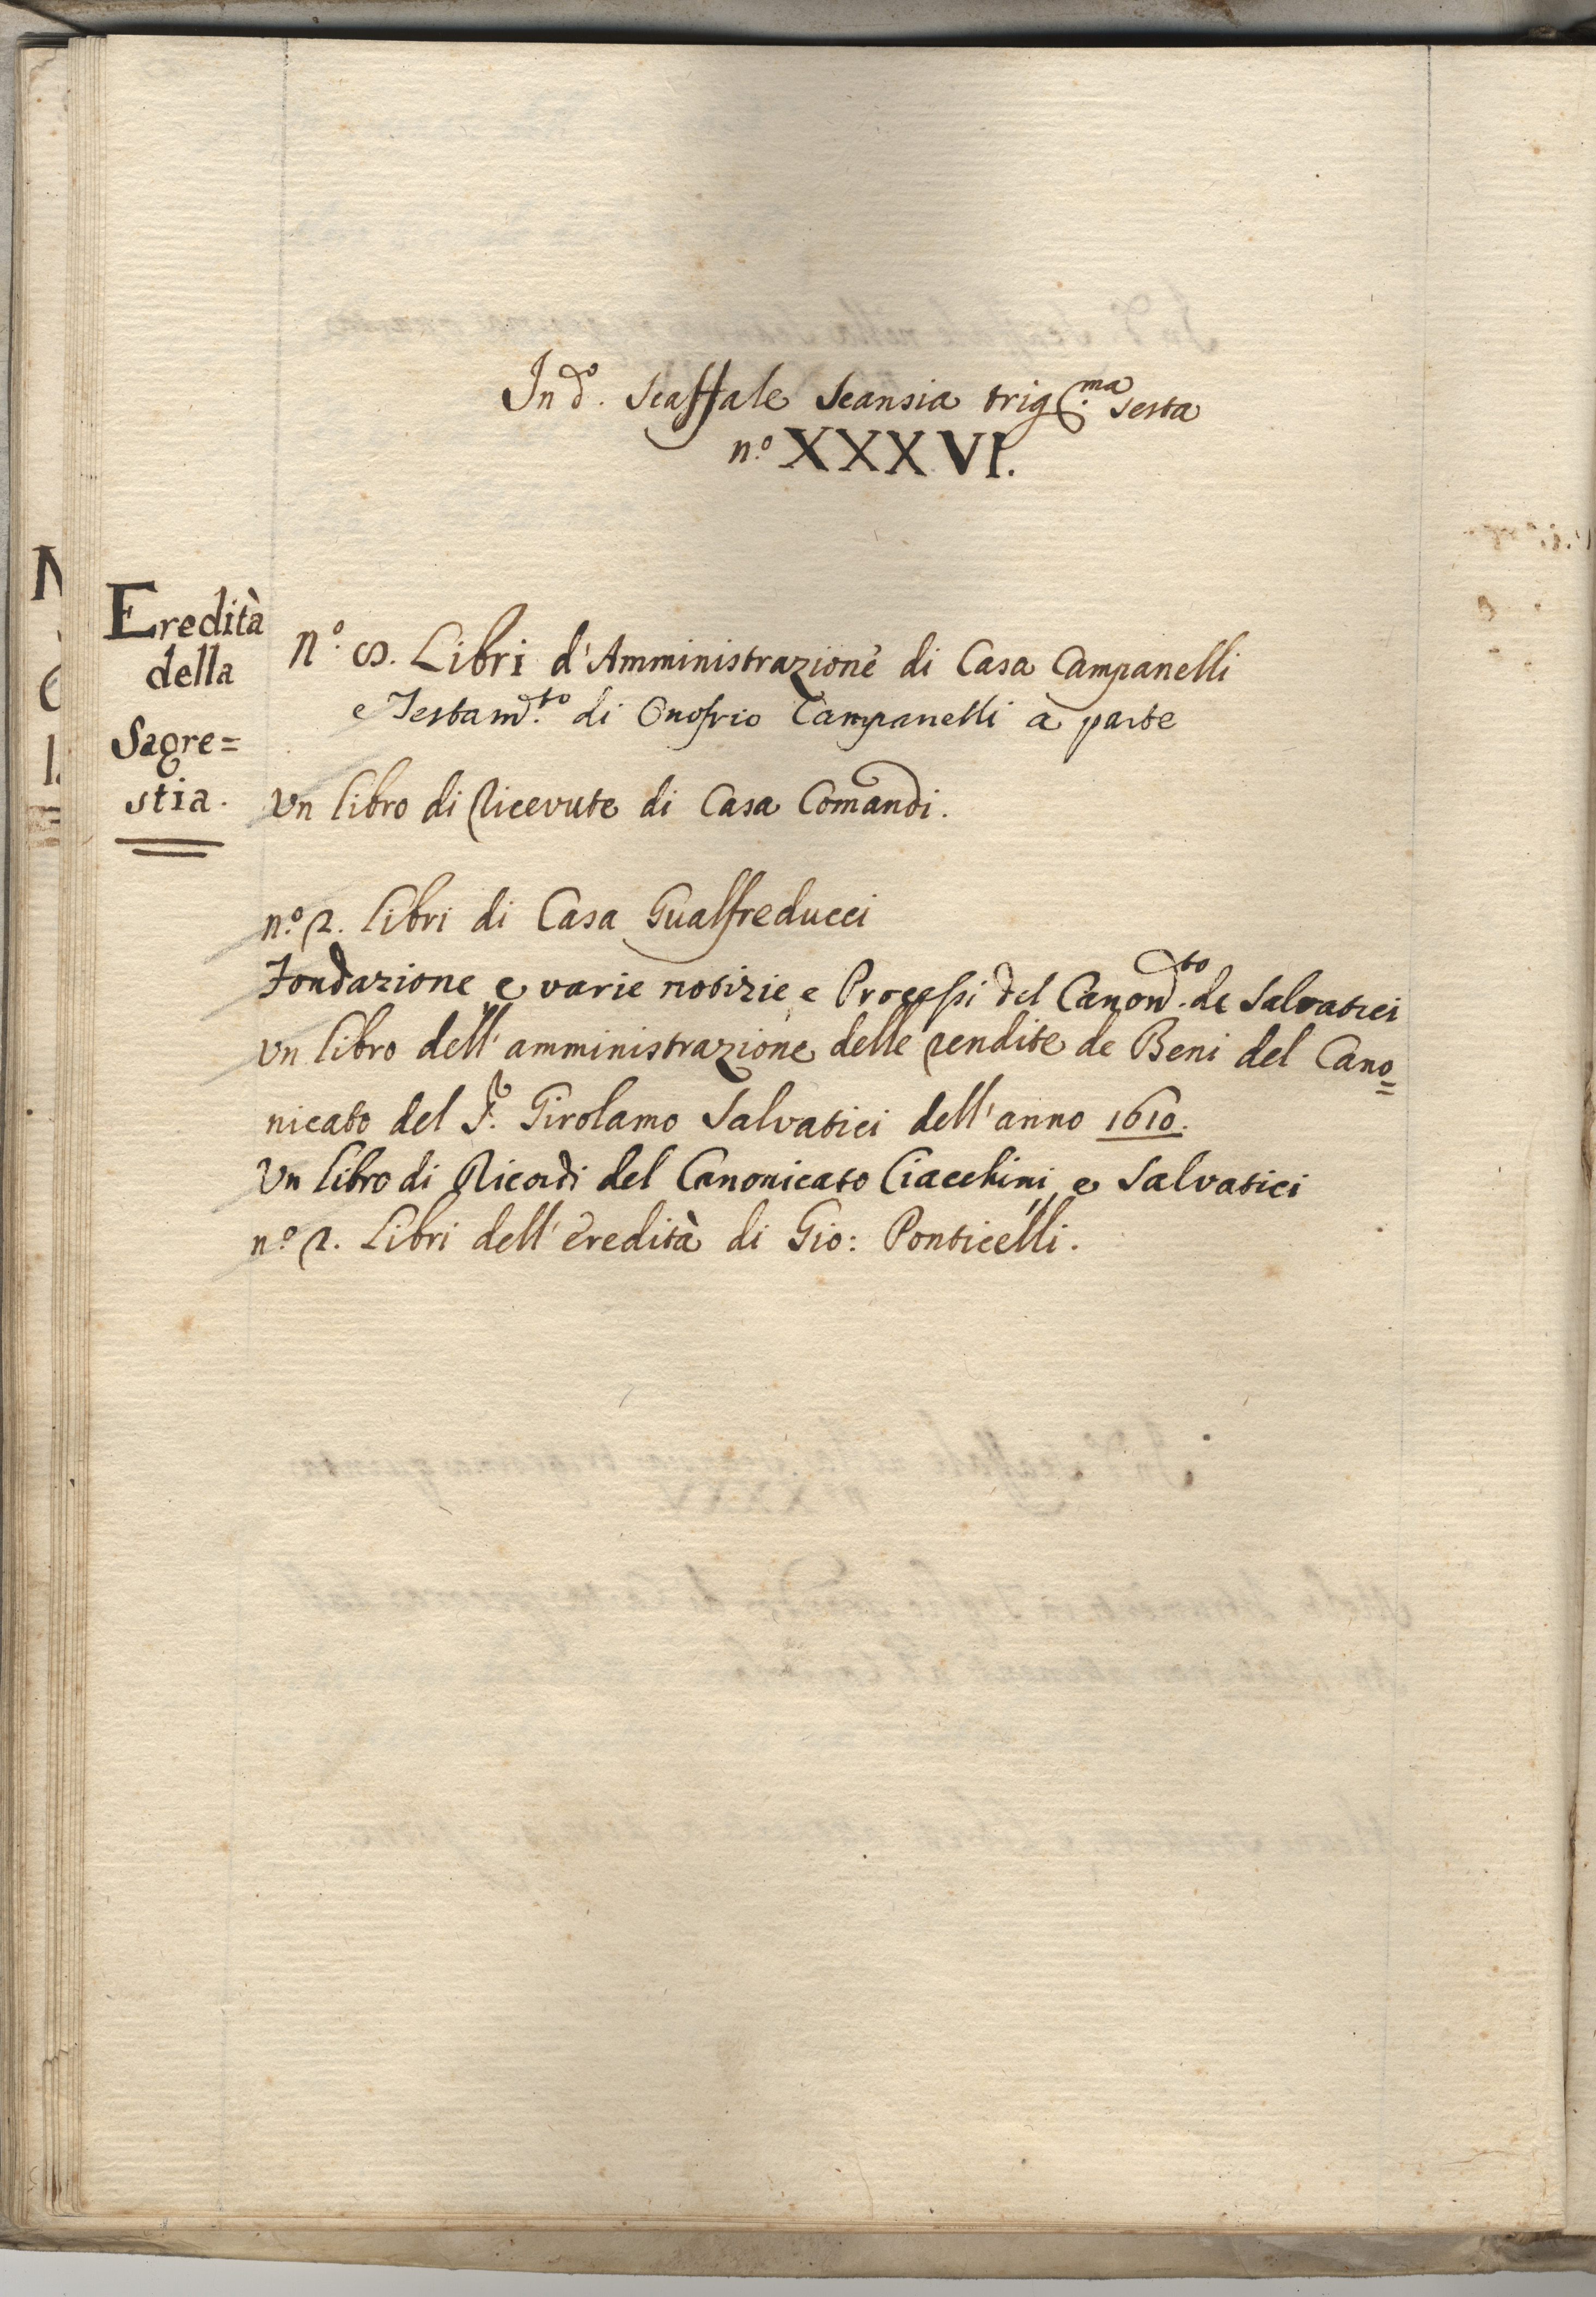 In d.º Scaffale Scansia trig.ma sesta
n.º XXXVI.
Eredità
della
Sagre=
stia.
N.º 8. Libri d'Amministrazione di Casa Campanelli
e Testam.to di Onofrio Campanelli à parte
Un libro di Ricevute di Casa Comandi.
n.º 2. libri di Casa Gualfreducci
Fondazione e varie notizie e Processi del Canon.to de Salvatici
Un libro dell'amministrazione delle rendite de Beni del Cano=
nicato del Girolamo Salvatici dell'anno 1610.
Un libro di Ricordi del Canonicato Ciacchini, e Salvatici
n.º 2. Libri dell'eredità di Gio: Ponticelli.